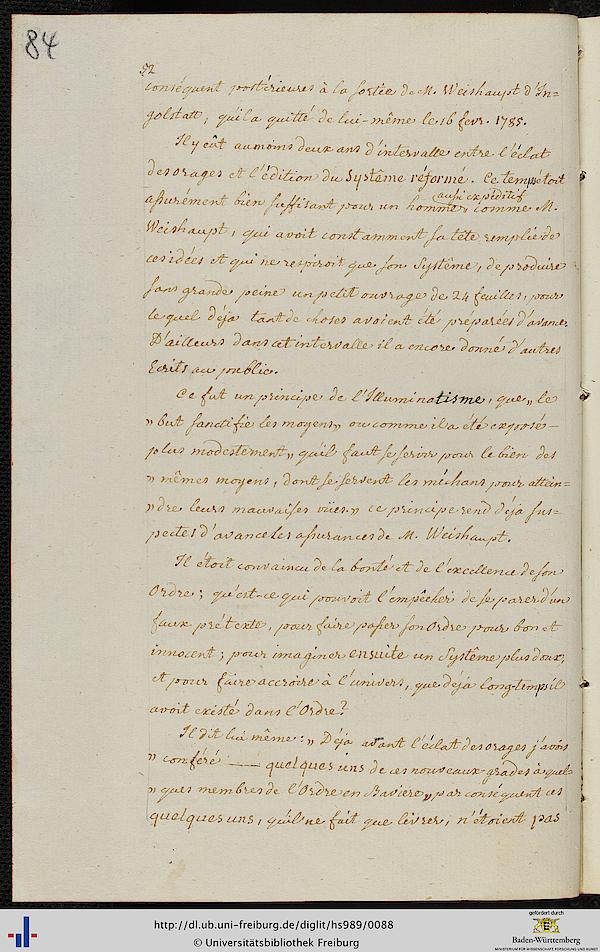 84
52
conséquent postérieures à la sortie de M. Weishaupt d'In=
golstatt, qu'il a quitté de lui-même le 16 fevr. 1785.
Il y eût au moins deux ans d'intervalle entre l'éclat
des orages et l'édition du Systême réformé. Ce temps étoit
assurément bien suffisant pour un homme aussi expéditif comme M.
Weishaupt, qui avoit constamment sa tête remplie de
ces idées et qui ne respiroit que son Systême, de produire
sans grande peine un petit ouvrage de 24 feuilles, pour
lequel déja tant de choses avoient été préparées d'avance.
D'ailleurs dans cet intervalle il a encore donné d'autres
Ecrits au public.
Ce fut un principe de l'Illuminatisme, que „ le
„ but sanctifie les moyens„ ou comme il a été exposé
plus modestement „ qu'il faut se servir pour le bien des
„ mêmes moyens, dont se servent les méchans pour attein=
„ dre leurs mauvaises vües.„ ce principe rend déja sus=
pectes d'avance les assurances de M. Weishaupt.
Il étoit convaincu de la bonté et de l'excellence de son
Ordre; qu'est-ce qui pouvoit l'empêcher de se parer d'un
faux prétexte, pour faire passer son Ordre pour bon et
innocent; pour imaginer ensuite un Systême plus doux,
et pour faire accroire à l'univers, que déja long-temps il
avoit existé dans l'Ordre?
Il dit lui même: „ Déja avant l'éclat des orages j'avois
„ conféré —— quelques uns de ces nouveaux grades à quel=
„ ques membres de l'Ordre en Baviere„ par conséquent ces
quelques uns, qu'il ne fait que livrer, n'étoient pas
http://dl.ub.uni-freiburg.de/diglit/hs989/0088
© Universitätsbibliothek Freiburg
gefördert durch
Baden-Württemberg
MINISTERIUM FÜR WISSENSCHAFT, FORSCHUNG UND KUNST